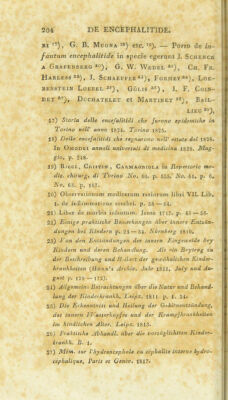 204 DE ENCEPHALITIDE.
RI ¹⁷), G. B. MUGNA ¹⁸) etc. ¹⁹). — Porro de in-
fantum encephalitide in specie egerant J. SCHENCK
a GRAFENBERG ²⁰), G. W. WEDEL ²¹), CH. FR.
HARLESS ²²), J. SCHAEFFER ²³), FORMEY ²⁴), LOE-
BENSTEIN LOEBEL ²⁵), GÖLIS ²⁶), J. F. COIN-
DET ²⁷), DUCHATELET et MARTINET ²⁸), BRIL-
17) Storia delle encefalitidi che furono epidemiche in
Torino nell' anno 1824. Torino 1825.
18) Delle encefalitidi che regnarono nell' estate del 1828.
In OMODEI annali universali di medicina 1829. Mag-
gio, p. 248.
19) RIGGI, CRISTIN, CARMAGNOLA in Repertorio me-
dic. chirurg. di Torino No.
20) Observationum medicarum rariorum libri VII. Lib.
21) Liber de morbis infantum. Jena 1717. p.
22) Einige praktische Bemerkungen über innere Entzün-
dungen bei Kindern p. Nürnberg 1810.
den Entzündungen der innern Eingeweide bey
Kindern und deren Behandlung. Als ein Beytrag zu
der Beschreibung und Heilart der gewöhnlichen Kinder-
krankheiten (HORN's Archiv. Jahr 1811, July und Au-
gust p.
24) Allgemeine Betrachtungen über die Natur und Behand-
lung der Kinderkrankh. Leipz. 1811. p.
25) Die Erkenntniss und Heilung der Gehirnentzündung,
des innern Wasserkopfes und der Krampfkrankheiten
im kindlichen Alter. Leipz. 1813.
26) Praktische Abhandl. über die vorzüglichsten Kinder-
krankh. B. 1.
27) Mém. sur l'hydrencephale ou céphalite interne hydro-
cephalique, Paris et Genève. 1817.